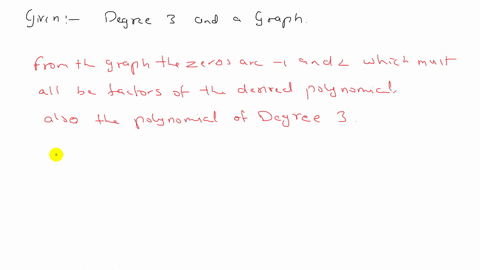 Given:- Degree 3 and a Graph.
from the graph the zeros are -1 and 2 which must
all be factors of the desired polynomial.
also the polynomial of Degree 3.